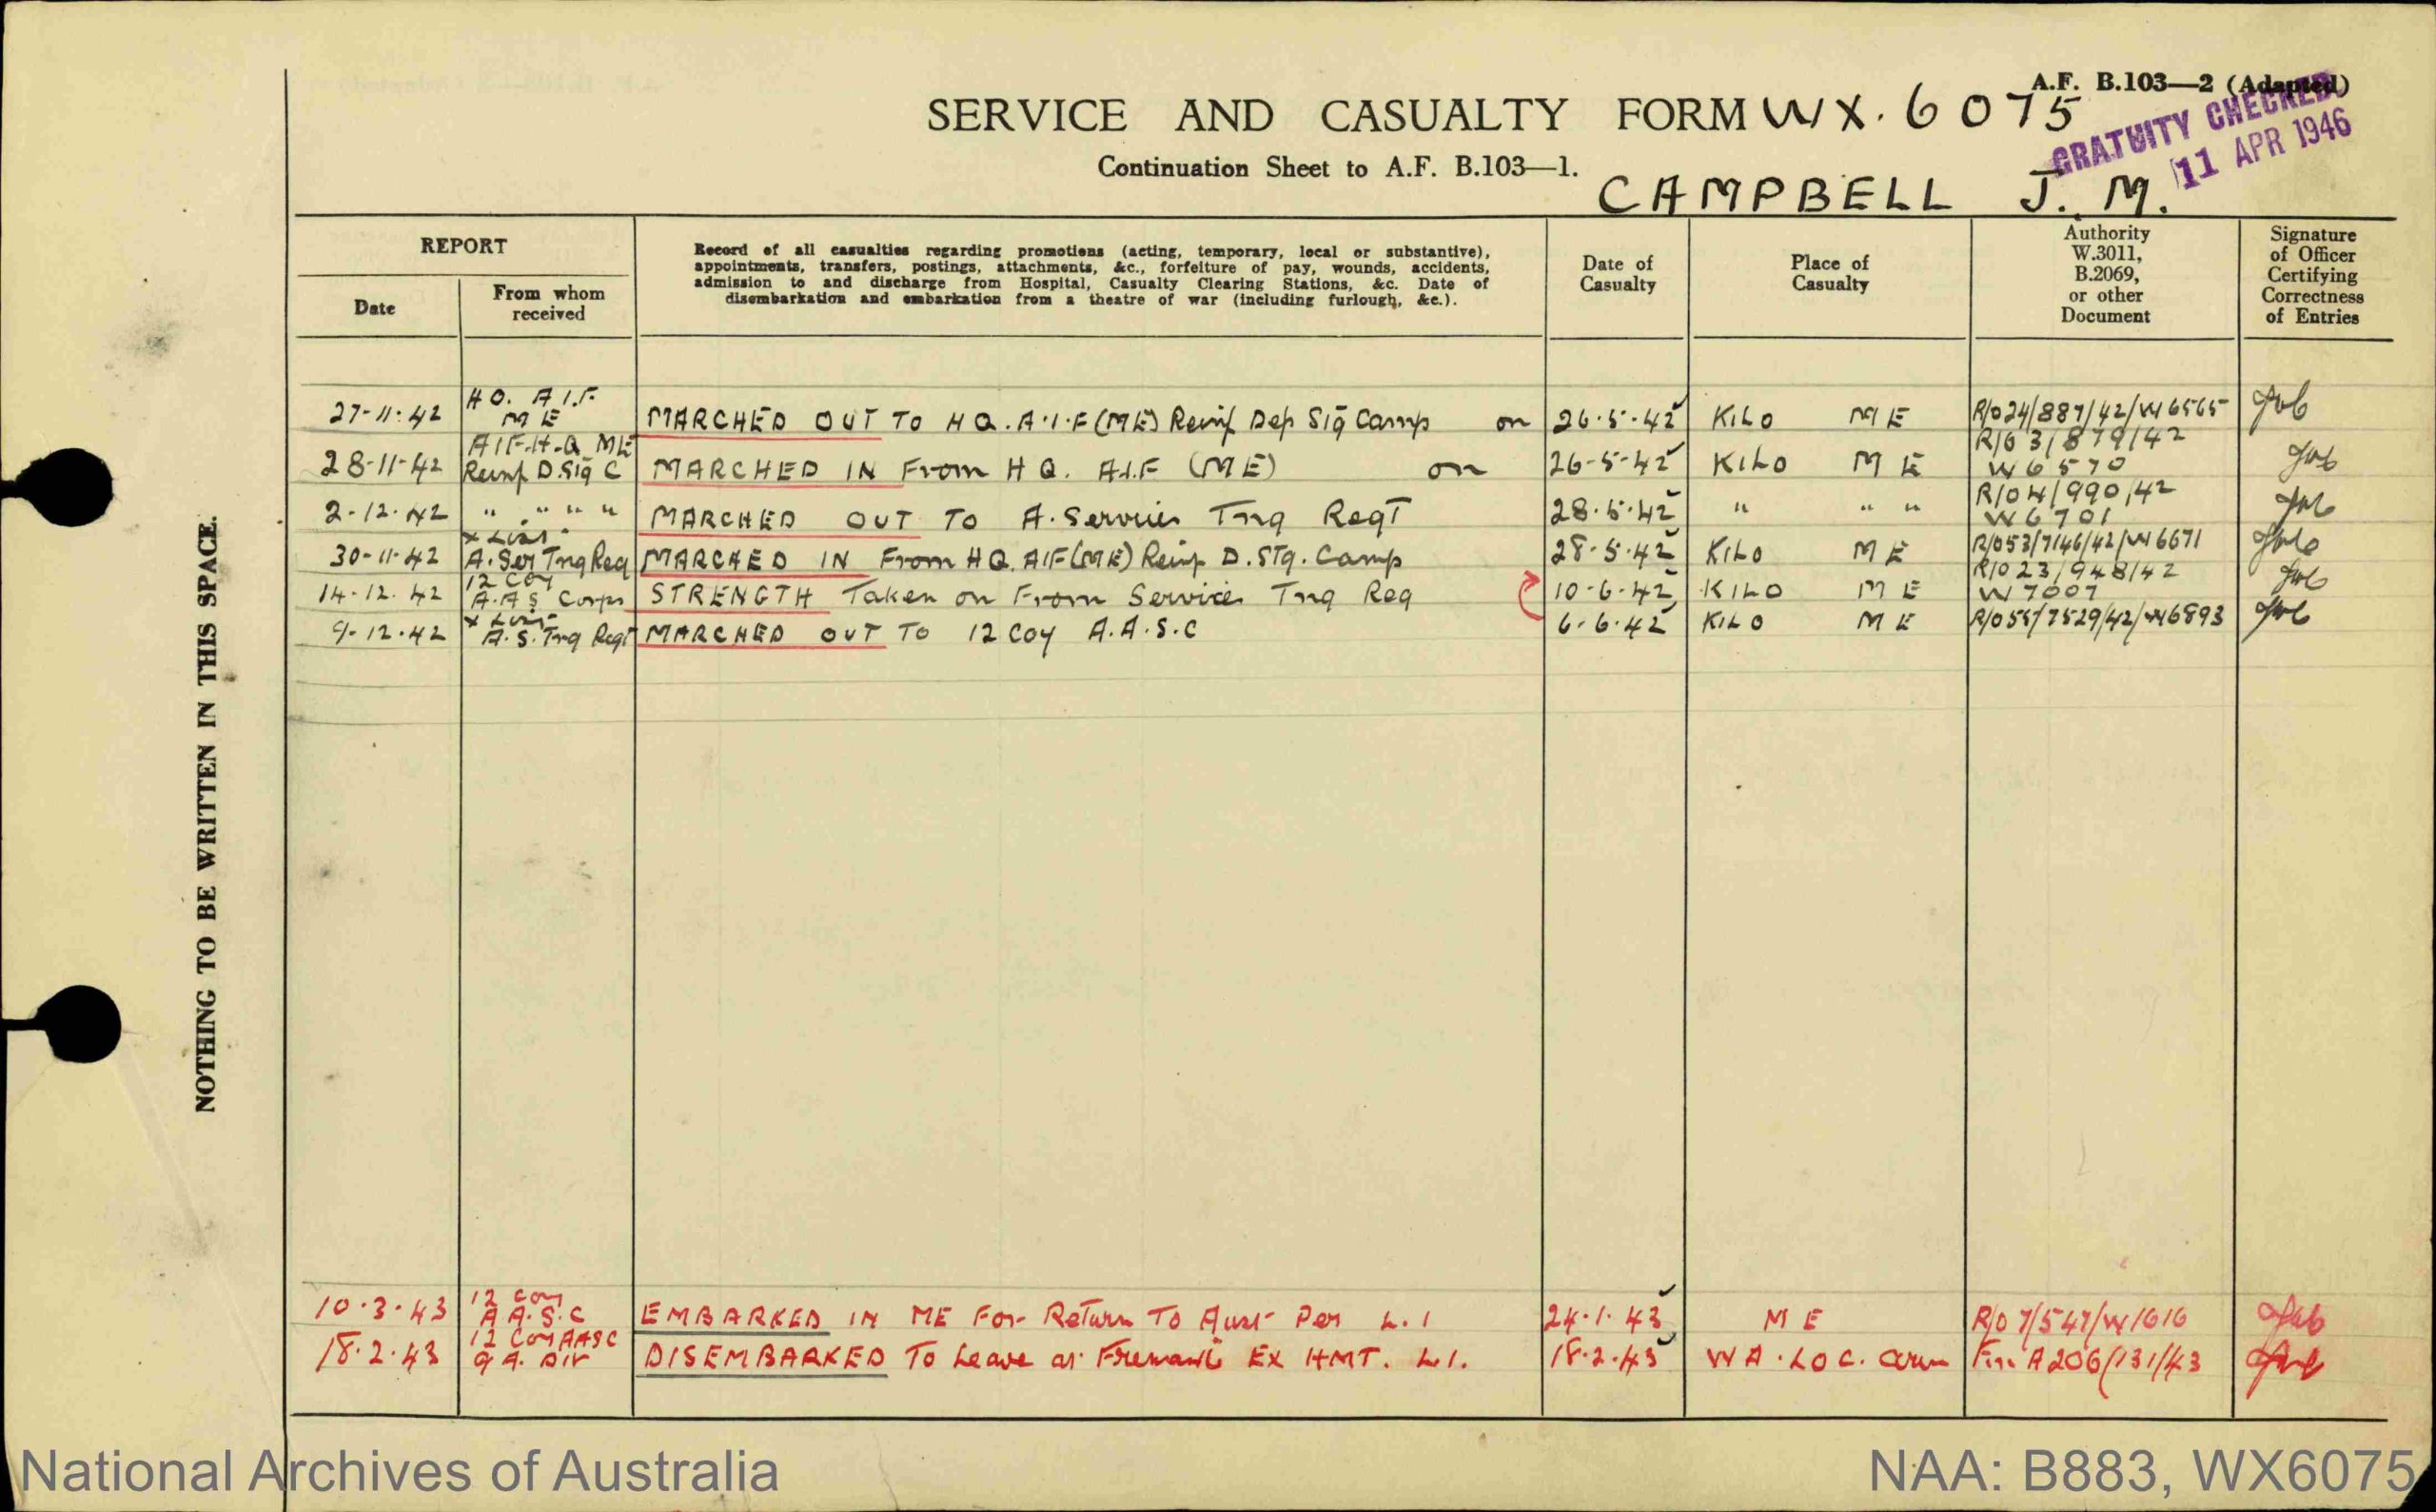 A.F. B.103—2 (Adapted)
SERVICE AND CASUALTY FORM WX. 6075
GRATUITY CHECKED
11 APR 1946
Continuation Sheet to A.F. B.103—1.
CAMPBELL J. M.
REPORT
Date
From whom received
Record of all casualties regarding promotions (acting, temporary, local or substantive),
appointments, transfers, postings, attachments, &c., forfeiture of pay, wounds, accidents,
admission to and discharge from Hospital, Casualty Clearing Stations, &c. Date of
disembarkation and embarkation from a theatre of war (including furlough, &c.).
Date of Casualty
Place of Casualty
Authority W.3011, B.2069, or other Document
Signature of Officer Certifying Correctness of Entries
27-11-42 HQ. A.I.F. ME MARCHED OUT TO HQ. A.I.F (ME) Reinf Dep Sig Camp on 26-5-42 KILO ME R/024/887/42/W6565
28-11-42 AIF.H.Q ME Reinf D.Sig C MARCHED IN From HQ. A.I.F (ME) on 26-5-42 KILO ME R/03/879/42 W6570
2-12-42 " " " " MARCHED OUT TO A. Services Tng RegT 28.5.42 " " " R/04/990/42 W6701
30-11-42 A. Ser Tng Reg MARCHED IN From HQ. AIF (ME) Reinf D. STg. Camp 28.5.42 KILO ME R/053/7146/42/W6671
14-12-42 12 Coy A.A.S Corps STRENGTH Taken on From Services Tng Reg 10-6-42 KILO ME R/023/948/42 W7007
9-12-42 A.S. Tng Regt MARCHED OUT TO 12 Coy A.A.S.C 6-6-42 KILO ME R/055/7529/42/W6893
10.3.43 12 Coy A A.S.C EMBARKED IN ME For Return To Aust Per L.1 24.1.43 ME R/07/547/W1616
18.2.43 12 Coy AASC 9 A. Div DISEMBARKED To Leave at Fremantle Ex HMT. L1. 18.2.43 WA. LOC. A206/131/43
NOTHING TO BE WRITTEN IN THIS SPACE.
National Archives of Australia
NAA: B883, WX6075